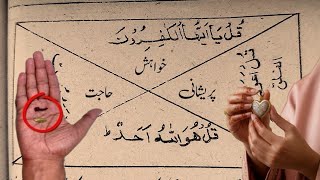 قُلْ يَا اَيُّهَا الْكٰفِرُوْنَ
خواہش
حاجت
پریشانی
الفلق
قُلْ هُوَ اللّٰهُ اَحَدٌ ط